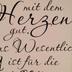 mit dem
Herzen
gut.
as Wesentlich
ist für die